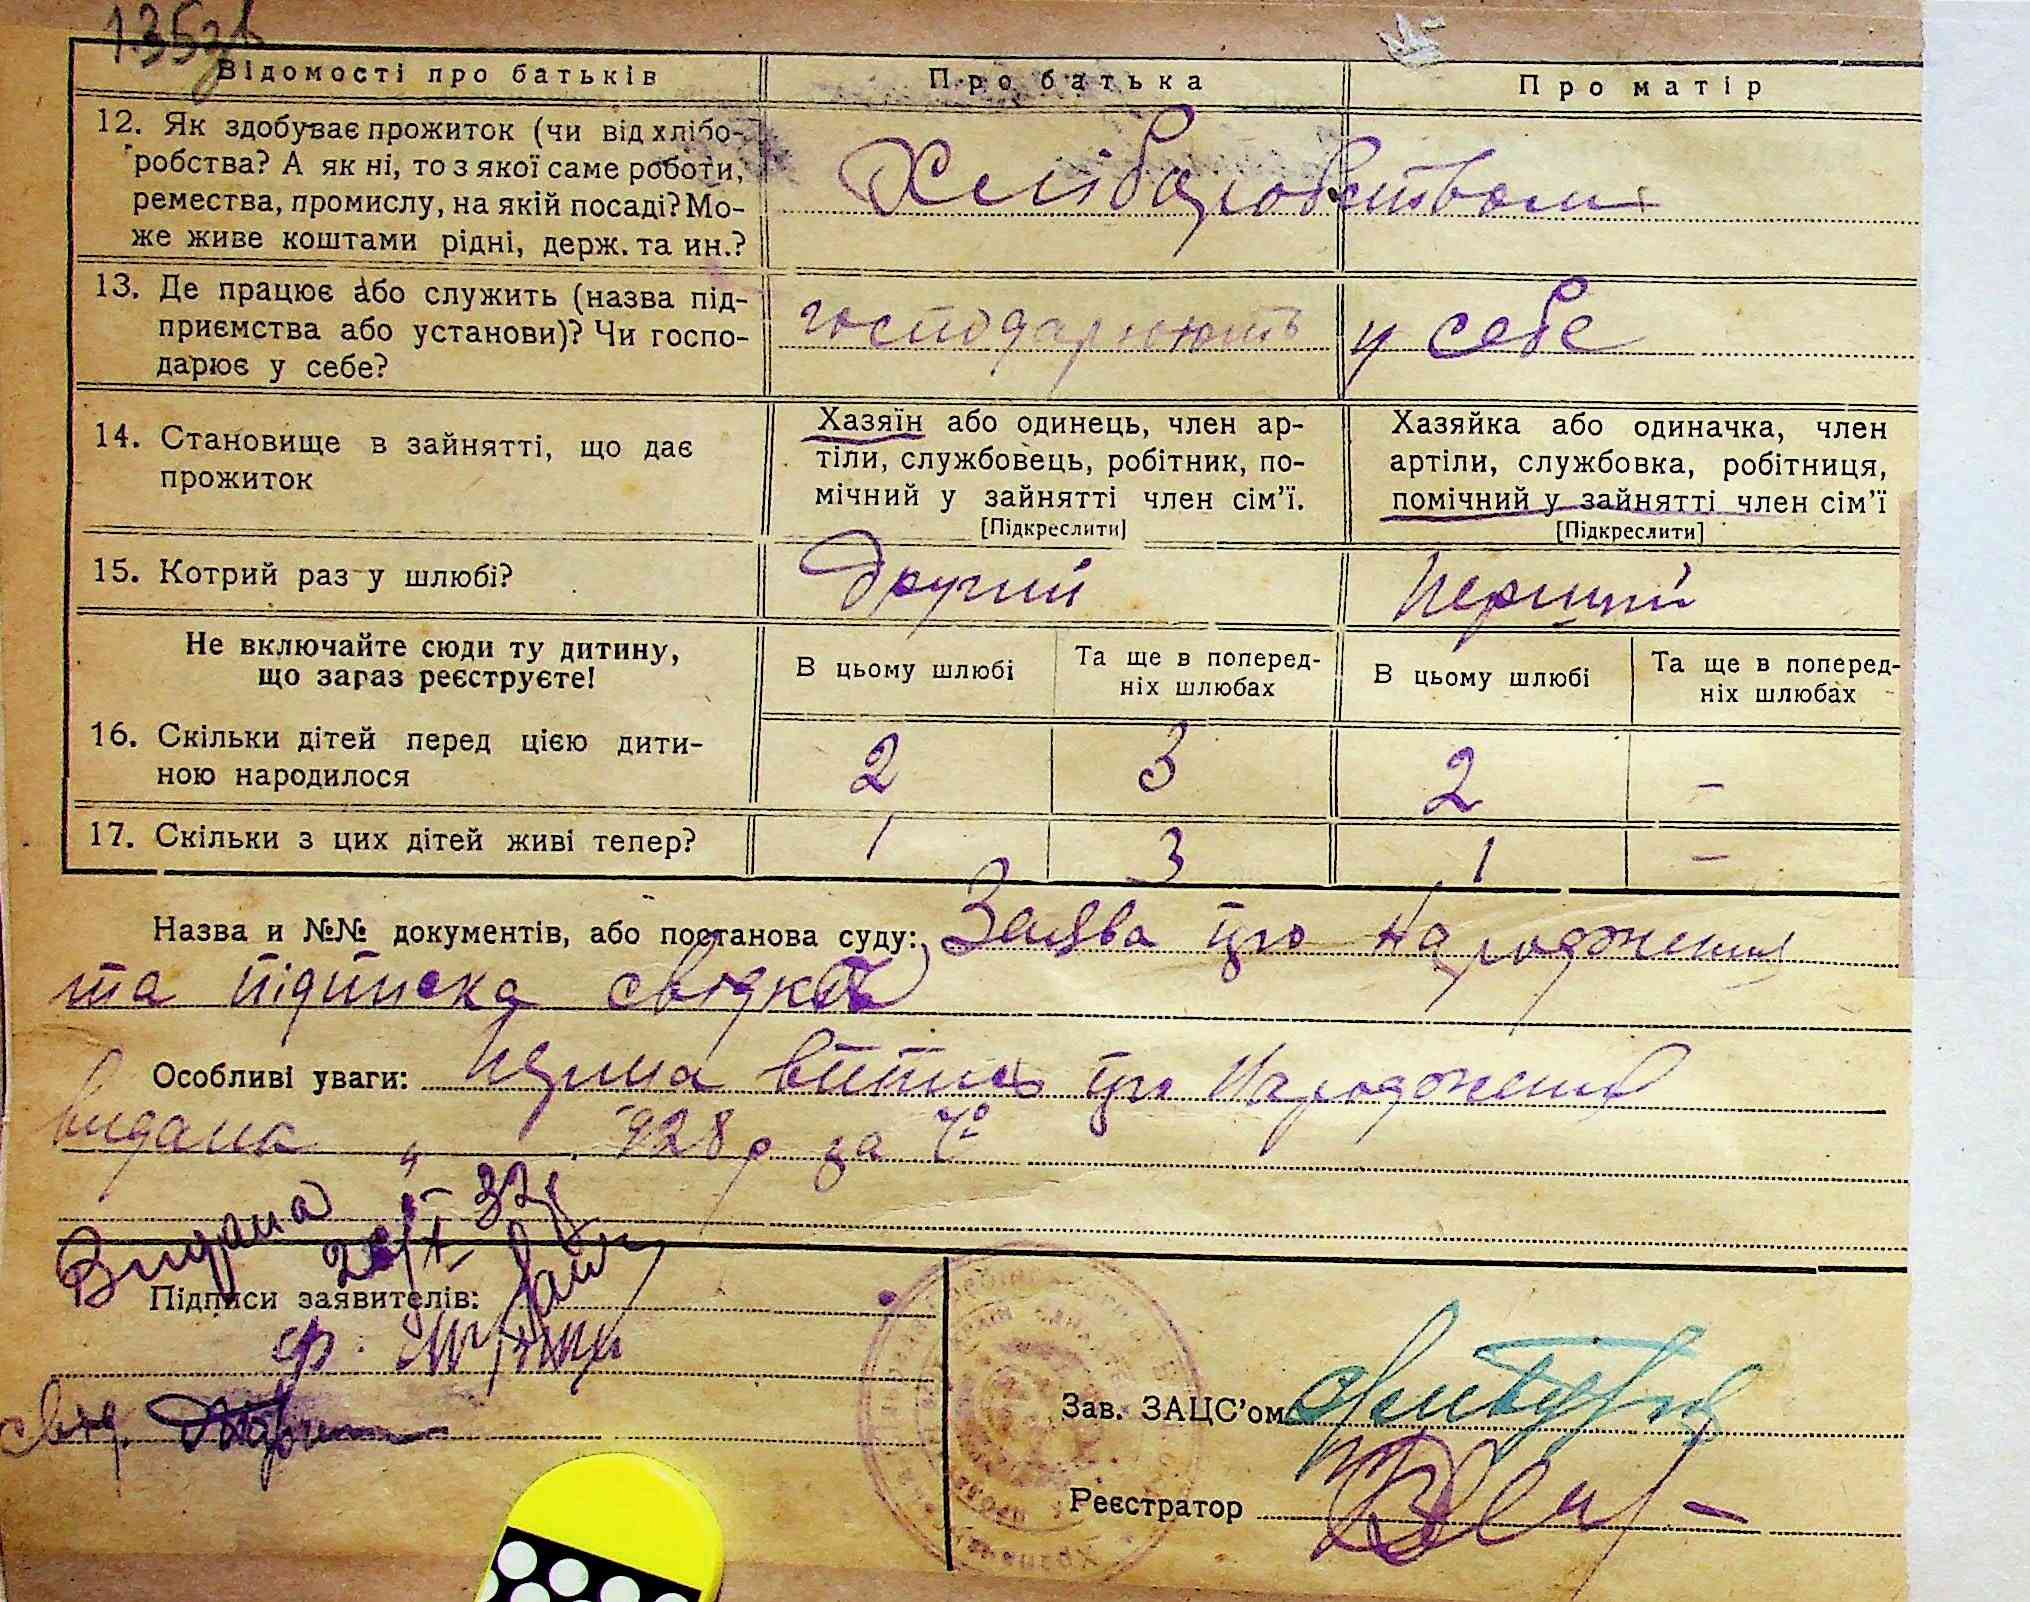 135зв
Відомості про батьків Про батька Про матір
12. Як здобуває прожиток (чи від хлібо-
робства? А як ні, то з якої саме роботи,
ремества, промислу, на якій посаді? Мо-
же живе коштами рідні, держ. та ин.?
Хліборобством
13. Де працює або служить (назва під-
приємства або установи)? Чи госпо-
дарює у себе?
господарюють у себе
14. Становище в зайнятті, що дає
прожиток
Хазяїн або одинець, член ар-
тіли, службовець, робітник, по-
мічний у зайнятті член сім'ї.
[Підкреслити]
Хазяйка або одиначка, член
артіли, службовка, робітниця,
помічний у зайнятті член сім'ї
[Підкреслити]
15. Котрий раз у шлюбі? Другий Перший
Не включайте сюди ту дитину,
що зараз реєструєте!
В цьому шлюбі
Та ще в поперед-
ніх шлюбах
В цьому шлюбі
Та ще в поперед-
ніх шлюбах
16. Скільки дітей перед цією дити-
ною народилося
2 3 2 –
17. Скільки з цих дітей живі тепер? 1 3 1 –
Назва и №№ документів, або постанова суду: Заява про народження
та підписка свідків
Особливі уваги: витись про народження
видана " 928 р за №
Видана 32р
Підписи заявителів:
Ф.
свід.
Зав. ЗАЦС'ом
Реєстратор